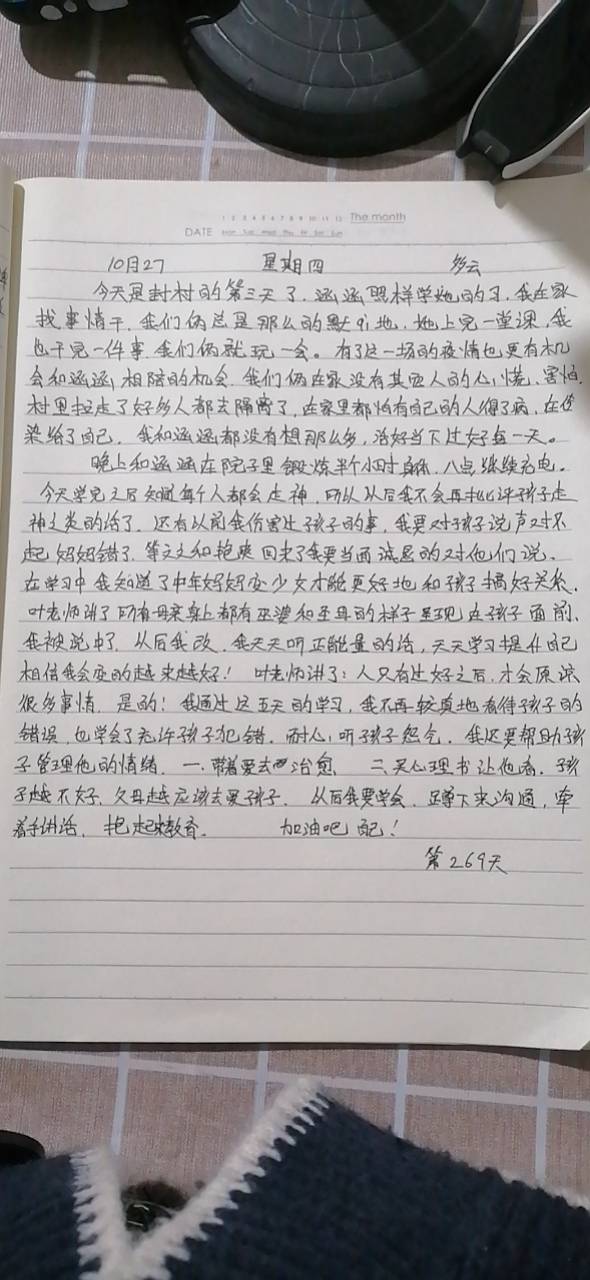 1 2 3 4 5 6 7 8 9 10 11 12 The month
DATE Mon Tue Wed Thu Fri Sat Sun
10月27 星期四 多云
今天是封村的第三天了，涵涵照样学她的习，我在家
找事情干，我们俩总是那么的默契地，她上完一堂课，我
也干完一件事，我们俩就玩一会。有了这一场的疫情也更有机
会和涵涵相陪的机会，我们俩在家没有其应人的心慌、害怕，
村里拉走了好多人都去隔离了，在家里都怕有自己的人得了病，在传
染给了自己，我和涵涵都没有想那么多，活好当下过好每一天。
晚上和涵涵在院子里锻炼半个小时身体，八点继续充电。
今天学完之后知道每个人都会走神，所以以后我不会再批评孩子走
神之类的话了，还有以前我伤害过孩子的事，我要对孩子说声对不
起妈妈错了，等文文和艳爽回来了我要当面诚恳的对他们说，
在学习中我知道了中年妈妈变少女才能更好地和孩子搞好关系，
叶老师讲了所有母亲身上都有巫婆和圣母的样子呈现在孩子面前，
我被说中了，从后我改，我天天听正能量的话，天天学习提升自己
相信我会变的越来越好！叶老师讲了：人只有过好之后，才会原谅
很多事情，是的！我通过这五天的学习，我不再较真地看待孩子的
错误，也学会了允许孩子犯错，耐心听孩子怨气，我还要帮助孩
子管理他的情绪，一、带着爱去治愈、二、买心理书让他看，孩
子越不好，父母越应该去爱孩子，从后我要学会，蹲下来沟通，牵
着手讲话，抱起来教育。 加油吧 配！
第269天